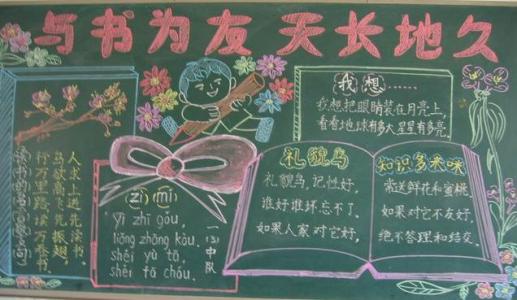 与书为友 天长地久
人求上进先读书、
鸟欲高飞先振翅。
行万里路读万卷书。
zì mí
yì zhī gǒu,
liǎng zhāng kǒu,
shéi yù tā,
shéi fā chóu.
一(3)中队
我想……
我想把眼睛装在月亮上,
看看地球有多大星星有多亮。
礼貌鸟
礼貌鸟,记性好,
谁好谁坏忘不了。
如果人家对它好,
知识多来咪
常送鲜花和蜜桃。
如果对它不友好,
绝不答理和结交。